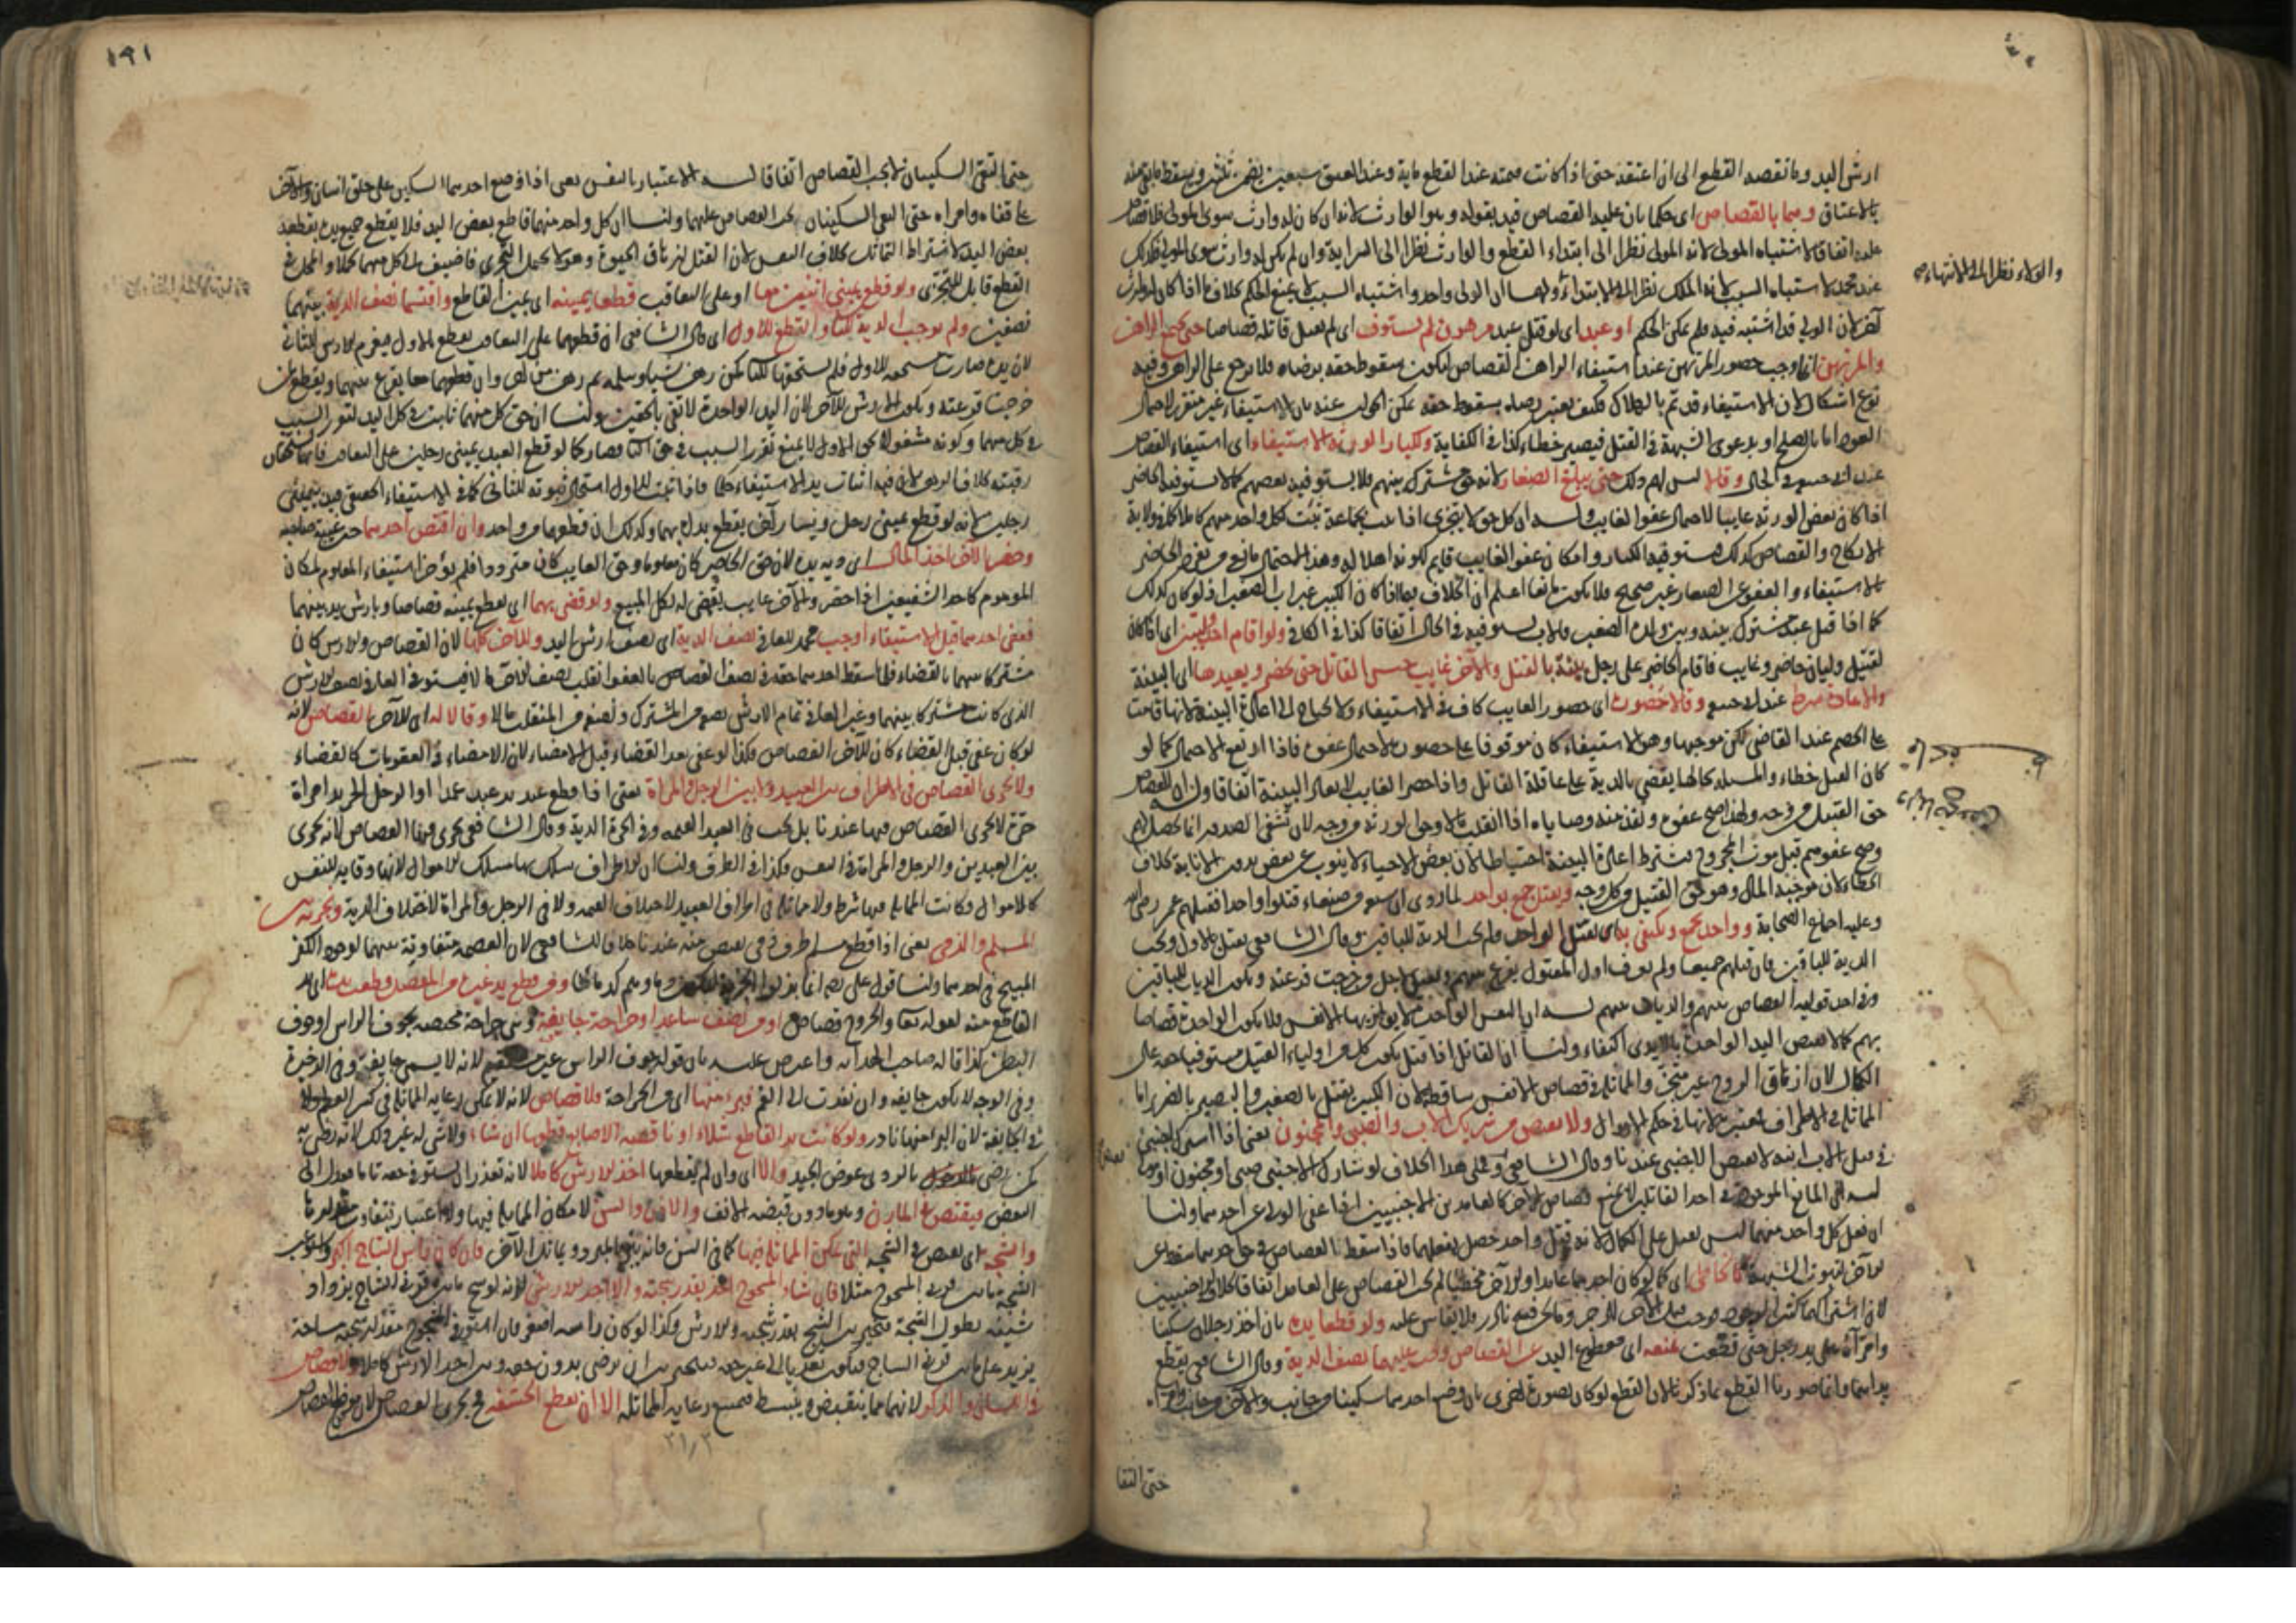 ارش اليد وما نقصه القطع الى ان اعتقه حتى اذا كانت قيمته عند القطع مائة وعند العتق سبعين يضمن ثلثين ويسقط
بالاعتاق وحكما بالقصاص اى حكما بان عليه القصاص قيد بقوله وهو الوارث لانه ان كان له وارث سوى المولى فلا قصاص
عليه اتفاقا لاشتباه المولى لانه المولى نظرا الى ابتداء القطع والوارث نظرا الى السراية وان لم يكن له وارث سوى المولى فكذلك
عند محمد لاشتباه السبب لانه الملك نظرا الى الابتداء ولهما ان الولى واحد واشتباه السبب لا يمنع الحكم بخلاف ما اذا كان له وارث
والولاء نظرا الى الانتهاء
آخر لان الولى قد اشتبه فيه فلم يمكن الحكم او عبد اى لو قتل عبد مرهون لم يستوف اى لم يقتل قاتله قصاصا حتى يجتمع الراهن
والمرتهن انما وجب حضور المرتهن عند استيفاء الراهن القصاص ليكون سقوط حقه برضاه فلا يرجع على الراهن وفيه
نوع اشكال لان الاستيفاء قد تم بالهلاك فكيف يعتبر رضاه بسقوط حقه يمكن الجواب عنه بان الاستيفاء غير متقرر لاحتمال
العود اما بالصلح او بدعوى الشبهة فى القتل فيصير خطاء كذا فى الكفاية ولكبار الورثة الاستيفاء اى استيفاء القصاص
عند ابى حنيفة فى الحال وقالا ليس لهم ذلك حتى يبلغ الصغار لانه حق مشترك بينهم فلا يستوفيه بعضهم كما لا يستوفيه الحاضر
اذا كان بعض الورثة غايبا لاحتمال عفو الغايب وله ان كل حق لا يتجزى اذا ثبت لجماعة ثبت لكل واحد منهم كاملا كما فى ولاية
الانكاح والقصاص كذلك فيستوفيه الكبار وامكان عفو الغايب قايم لكونه اهلا له وهذا الاحتمال مانع من تفرد الحاضر
بالاستيفاء والعفو عن الصغار غير صحيح فلا يكون مانعا اعلم ان الخلاف فيما اذا كان الكبير غير اب الصغير اذ لو كان كذلك
كما اذا قتل عبد مشترك بينه وبين ولده الصغير فللاب يستوفيه فى الحال اتفاقا كذا فى الكافى ولو اقام احد وليين اى اذا كان
لقتيل وليان حاضر وغايب فاقام الحاضر على رجل بينة بالقتل والآخر غايب حبس القاتل حتى يحضر ويعيدها اى البينة
والاعادة شرط عند ابى حنيفة وقالا حضوره اى حضور الغايب كاف فى الاستيفاء ولا يحتاج الى اعادة البينة لانها قامت
على الخصم عند القاضى لكن موجبها وهو الاستيفاء كان موقوفا على حضوره لاحتمال عفوه فاذا ارتفع الاحتمال كما لو
كان القتل خطاء والمسئلة بحالها يقضى بالدية على عاقلة القاتل واذا حضر الغايب لا يعاد البينة اتفاقا وله ان القصاص
حق القتيل من وجه ولهذا صح عفوه ونفذ منه وصاياه اذا انقلب مالا وحق الورثة من وجه لان تشفى الصدر انما يحصل لهم
وصح عفوهم قبل موت المجروح فيشترط اعادة البينة احتياطا لان بعض الاحياء لا ينوب عن بعض بدون الانابة بخلاف
الخطاء لان موجبه المال وهو حق القتيل من كل وجه ويقتل جمع بواحد لما روى ان سبعة من صنعاء قتلوا واحدا فقتلهم عمر رضى الله
وعليه اجماع الصحابة وواحد بجمع ويكتفى به اى بقتل الواحد ولم يجب الدية للباقين وقال الشافعى يقتل بالاول ويجب
الدية للباقين فان قتلهم جميعا ولم يعرف اول المقتول يقرع بينهم ويقتل لمن خرجت قرعته ويكون الديات للباقين
وفى احد قوليه القصاص بينهم والديات بينهم له ان النفس الواحدة لا يوازيها الانفس فلا يكون الواحدة قصاصا
بهم كما لا يقتص اليد الواحدة بالايدى اكتفاء ولنا ان القاتل اذا قتل يكون كل من اولياء القتيل مستوفيا حقه على
الكمال لان ازهاق الروح غير متجز والمماثلة فى قصاص الانفس ساقطة لان الكبير يقتل بالصغير والبصير بالضرير اما
المماثلة فى الاطراف فمعتبر لانها فى حكم الاموال ولا يقتص من شريك الاب والصبى والمجنون يعنى اذا اشترك اجنبى
فى قتل الاب ابنه لا يقتص الاجنبى عندنا وقال الشافعى وعلى هذا الخلاف لو شارك الاجنبى صبى او مجنون
له ان المانع الموجود فى احد القاتلين لا يمنع قصاص الآخر كالعامدين الاجنبيين اذا عفى الولى عن احدهما ولنا
ان فعل كل واحد منهما ليس بقتل على الكمال لانه قتل واحد حصل بفعلهما فاذا سقط القصاص فى حق احدهما سقط عن
الآخر لثبوت الشبهة كالخاطئ اى كما لو كان احدهما عامدا والآخر مخطيا لم يجب القصاص على العامد اتفاقا بخلاف الاجنبيين
لان اشتراكهما كثير الوجود فوجب الزجر وما نحن فيه نادر فلا يقاس عليه ولو قطعا يده بان اخذ رجلان سكينا
وامراه على يد رجل حتى قطعت نمنعه اى مقطوع اليد عن القصاص ونوجب عليهما نصف الدية وقال الشافعى يقطع
يداهما وانما صورنا القطع بما ذكرنا لان القطع لو كان بصورة اخرى بان وضع احدهما سكينا من جانب والآخر من جانب
حتى التقا
١٩١
حتى التقى السكينان لا يجب القصاص اتفاقا له الاعتبار بالنفس يعنى اذا وضع احدهما السكين على حلق انسان والآخر
على قفاه وامراه حتى التقى السكينان يجب القصاص عليهما ولنا ان كل واحد منهما قاطع بعض اليد فلا يقطع جميع يده بقطعه
بعض اليد لاشتراط التماثل بخلاف النفس لان القتل ازهاق الحيوة وهو لا يحتمل التجزى فاضيف الى كل منهما كملا والمحل فى
القطع قابل للتجزى ولو قطع يمينى اثنين معا او على التعاقب قطعا يمينه اى يمين القاطع واقتسما نصف الدية بينهما
نصفين ولم نوجب الدية للثانى والقطع للاول اى قال الشافعى ان قطعهما على التعاقب يقطع بالاول فيغرم الارش للثانى
لان يده صارت مستحقة للاول فلم يستحقها للثانى كمن رهن شيئا وسلمه ثم رهن من آخر وان قطعهما معا يقرع بينهما ويقطع لمن
خرجت قرعته ويكون الارش للآخر لان اليد الواحدة لا تفى بالحقين ولنا ان حق كل منهما ثابت فى كل اليد لتقرر السبب
فى كل منهما وكونه مشغولا بحق الاول لا يمنع تقرر السبب فى حق الثانى فصار كما لو قطع العبد يمينى رجلين على التعاقب
رقبته بخلاف الرهن لان فيه اثبات يد الاستيفاء حكما فاذا ثبت للاول استحال ثبوته للثانى كما فى الاستيفاء الحقيقى قيد بيمينى
رجلين لانه لو قطع يمينى رجل ويسار آخر يقطع يداه بهما وكذلك ان قطعهما من واحد وان اقتص احدهما حين غيبة صاحبه
وحضر الآخر اخذ المال اى دية يده لان حق الحاضر كان معلوما وحق الغايب كان مترددا فلم يؤخر استيفاء المعلوم لمكان
الموهوم كاحد الشفيعين اذا حضر والآخر غايب يقضى له بكل المبيع ولو قضى بهما اى بقطع يمينه قصاصا وبارش يد بينهما
فعفى احدهما قبل الاستيفاء اوجب محمد للعافى نصف الدية اى نصف ارش اليد وللآخر كلها لان القصاص والارش كان
مشتركا بينهما بالقضاء فلما اسقط احدهما حقه فى نصف القصاص بالعفو انقلب نصف الآخر مالا فيستوفى العافى نصف الارش
الذى كانت مشتركا بينهما وغير العافى تمام الارش نصفه من المشترك ونصفه من المنقلب مالا وقالا له اى للآخر القصاص لانه
لو كان عفى قبل القضاء كان للآخر القصاص فكذا لو عفى بعد القضاء قبل الامضاء لان الامضاء فى العقوبات كالقضاء
ولا يجرى القصاص فى الاطراف بين العبيد ولا بين الرجل والمراة يعنى اذا قطع عبد يد عبد عمدا او الرجل الحر يد امراة
حرة لا يجرى القصاص فيهما عندنا بل يجب فى العبد القيمة وفى الحرة الدية وقال الشافعى يجرى فيهما القصاص لانه يجرى
بين العبدين والرجل والمراة فى النفس فكذا فى الطرف ولنا ان الاطراف سلك بها مسلك الاموال لانها وقاية للنفس
كالاموال وكانت المماثلة فيها شرطا ولا مماثلة فى اطراف العبيد لاختلاف القيمة ولا فى الرجل والمراة لاختلاف الدية ونجريه بين
المسلم والذمى يعنى اذا قطع مسلم طرف ذمى يقتص منه عندنا خلافا للشافعى لان العصمة متفاوتة بينهما لوجود الكفر
المبيح فى احدهما ولنا قول على رضه انما بذلوا الجزية ليكون دماؤهم كدمائنا ومن قطع يد غيره من المفصل قطعت يده اى يد
القاطع منه لقوله تعالى والجروح قصاص او من نصف ساعد او جراحة جايفة وهى جراحة مختصة بجوف الراس او جوف
البطن كذا قاله صاحب الهداية واعترض عليه بان قوله بجوف الراس غير مستقيم لانه لا يسمى جايفة وفى الذخيرة
وفى الوجه لا يكون جايفة وان نفذت الى الفم فبرء منها اى من الجراحة فلا قصاص لانه لا يمكن رعاية المماثلة فى كسر العظم ولا
فى الجايفة لان البرء منها نادر ولو كانت يد القاطع شلاء او ناقصة الاصابع قطعها ان شاء ولا شئ له غير ذلك لانه رضى به
كمن رضى بالردى عوض الجيد والا اى وان لم يقطعها اخذ الارش كاملا لانه تعذر استيفاء حقه تاما فعدل الى
العوض فيقتص فى المارن وهو ما دون قصبة الانف والاذن والسن لامكان المماثلة فيها ولا اعتبار بتفاوت
والشجة اى يقتص فى الشجة التى يمكن المماثلة فيها كما فى السن فانه يبرد بالمبرد ويماثل الآخر فان كان راس الشاج اكبر واستوعب
الشجة ما بين قرنى المشجوج مثلا فان شاء المشجوج اخذ بقدر شجته والا اخذ الارش لانه لو شج ما بين قرنى الشاج يزداد
شينه بطول الشجة فيخير بين الشج بقدر شجته والارش وكذا لو كان راسه اصغر فان استوفى المشجوج مقدار شجته مساحة
يزيد على ما بين قرنى الشاج فيكون تعديا الى غير حقه فيخير بين ان يرضى بدون حقه وبين اخذ الارش كاملا ولا قصاص
فى اللسان والذكر لانهما مما ينقبض وينبسط فيمتنع رعاية المماثلة الا ان يقطع الحشفة فح يجرى القصاص لان موضع القصاص